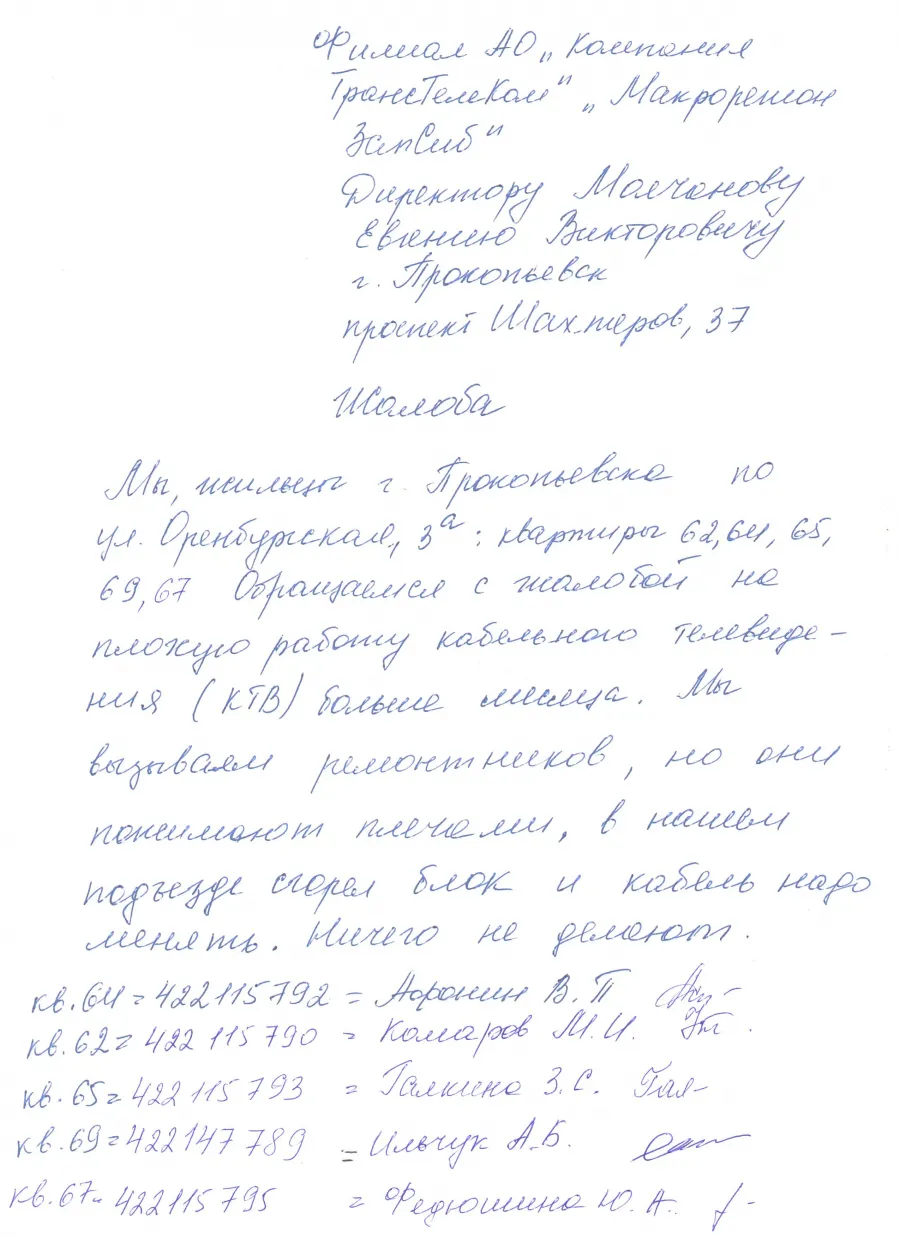 Филиал АО „Компания
ТрансТелеКом" „Макрорегион
ЗапСиб"
Директору Молчанову
Евгению Викторовичу
г. Прокопьевск
проспект Шахтеров, 37
Жалоба
Мы, жильцы г. Прокопьевска по
ул. Оренбургская, 3а: квартиры 62, 64, 65,
69, 67 Обращаемся с жалобой на
плохую работу кабельного телевиде-
ния (КТВ) больше месяца. Мы
вызываем ремонтников, но они
пожимают плечами, в нашем
подъезде сгорел блок и кабель надо
менять. Ничего не делают.
кв. 64 = 422115792 = Аоронин В. П
кв. 62 = 422 115 790 = Комаров М. И.
кв. 65 = 422115 793 = Галкина З. С. Гал-
кв. 69 = 422147 789 = Ильчук А. Б.
кв. 67 - 422115795 = Федюшина Ю. А.